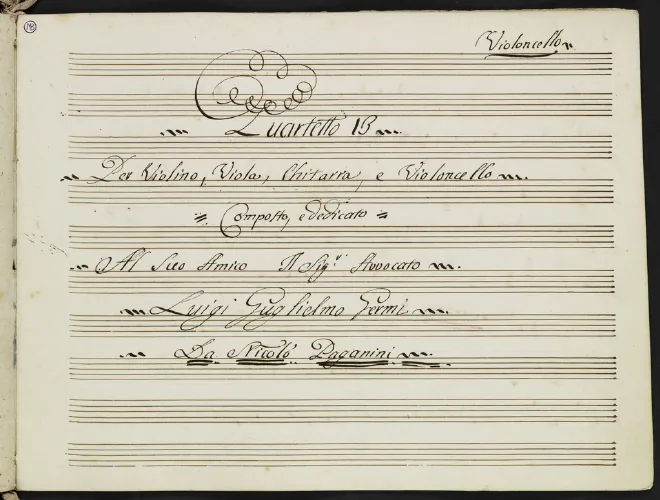 Violoncello
Quartetto 13
Per Violino, Viola, Chitarra, e Violoncello
Composto, e dedicato
Al Suo Amico Il Sig.r Avvocato
Luigi Guglielmo Germi
Da Nicolò Paganini